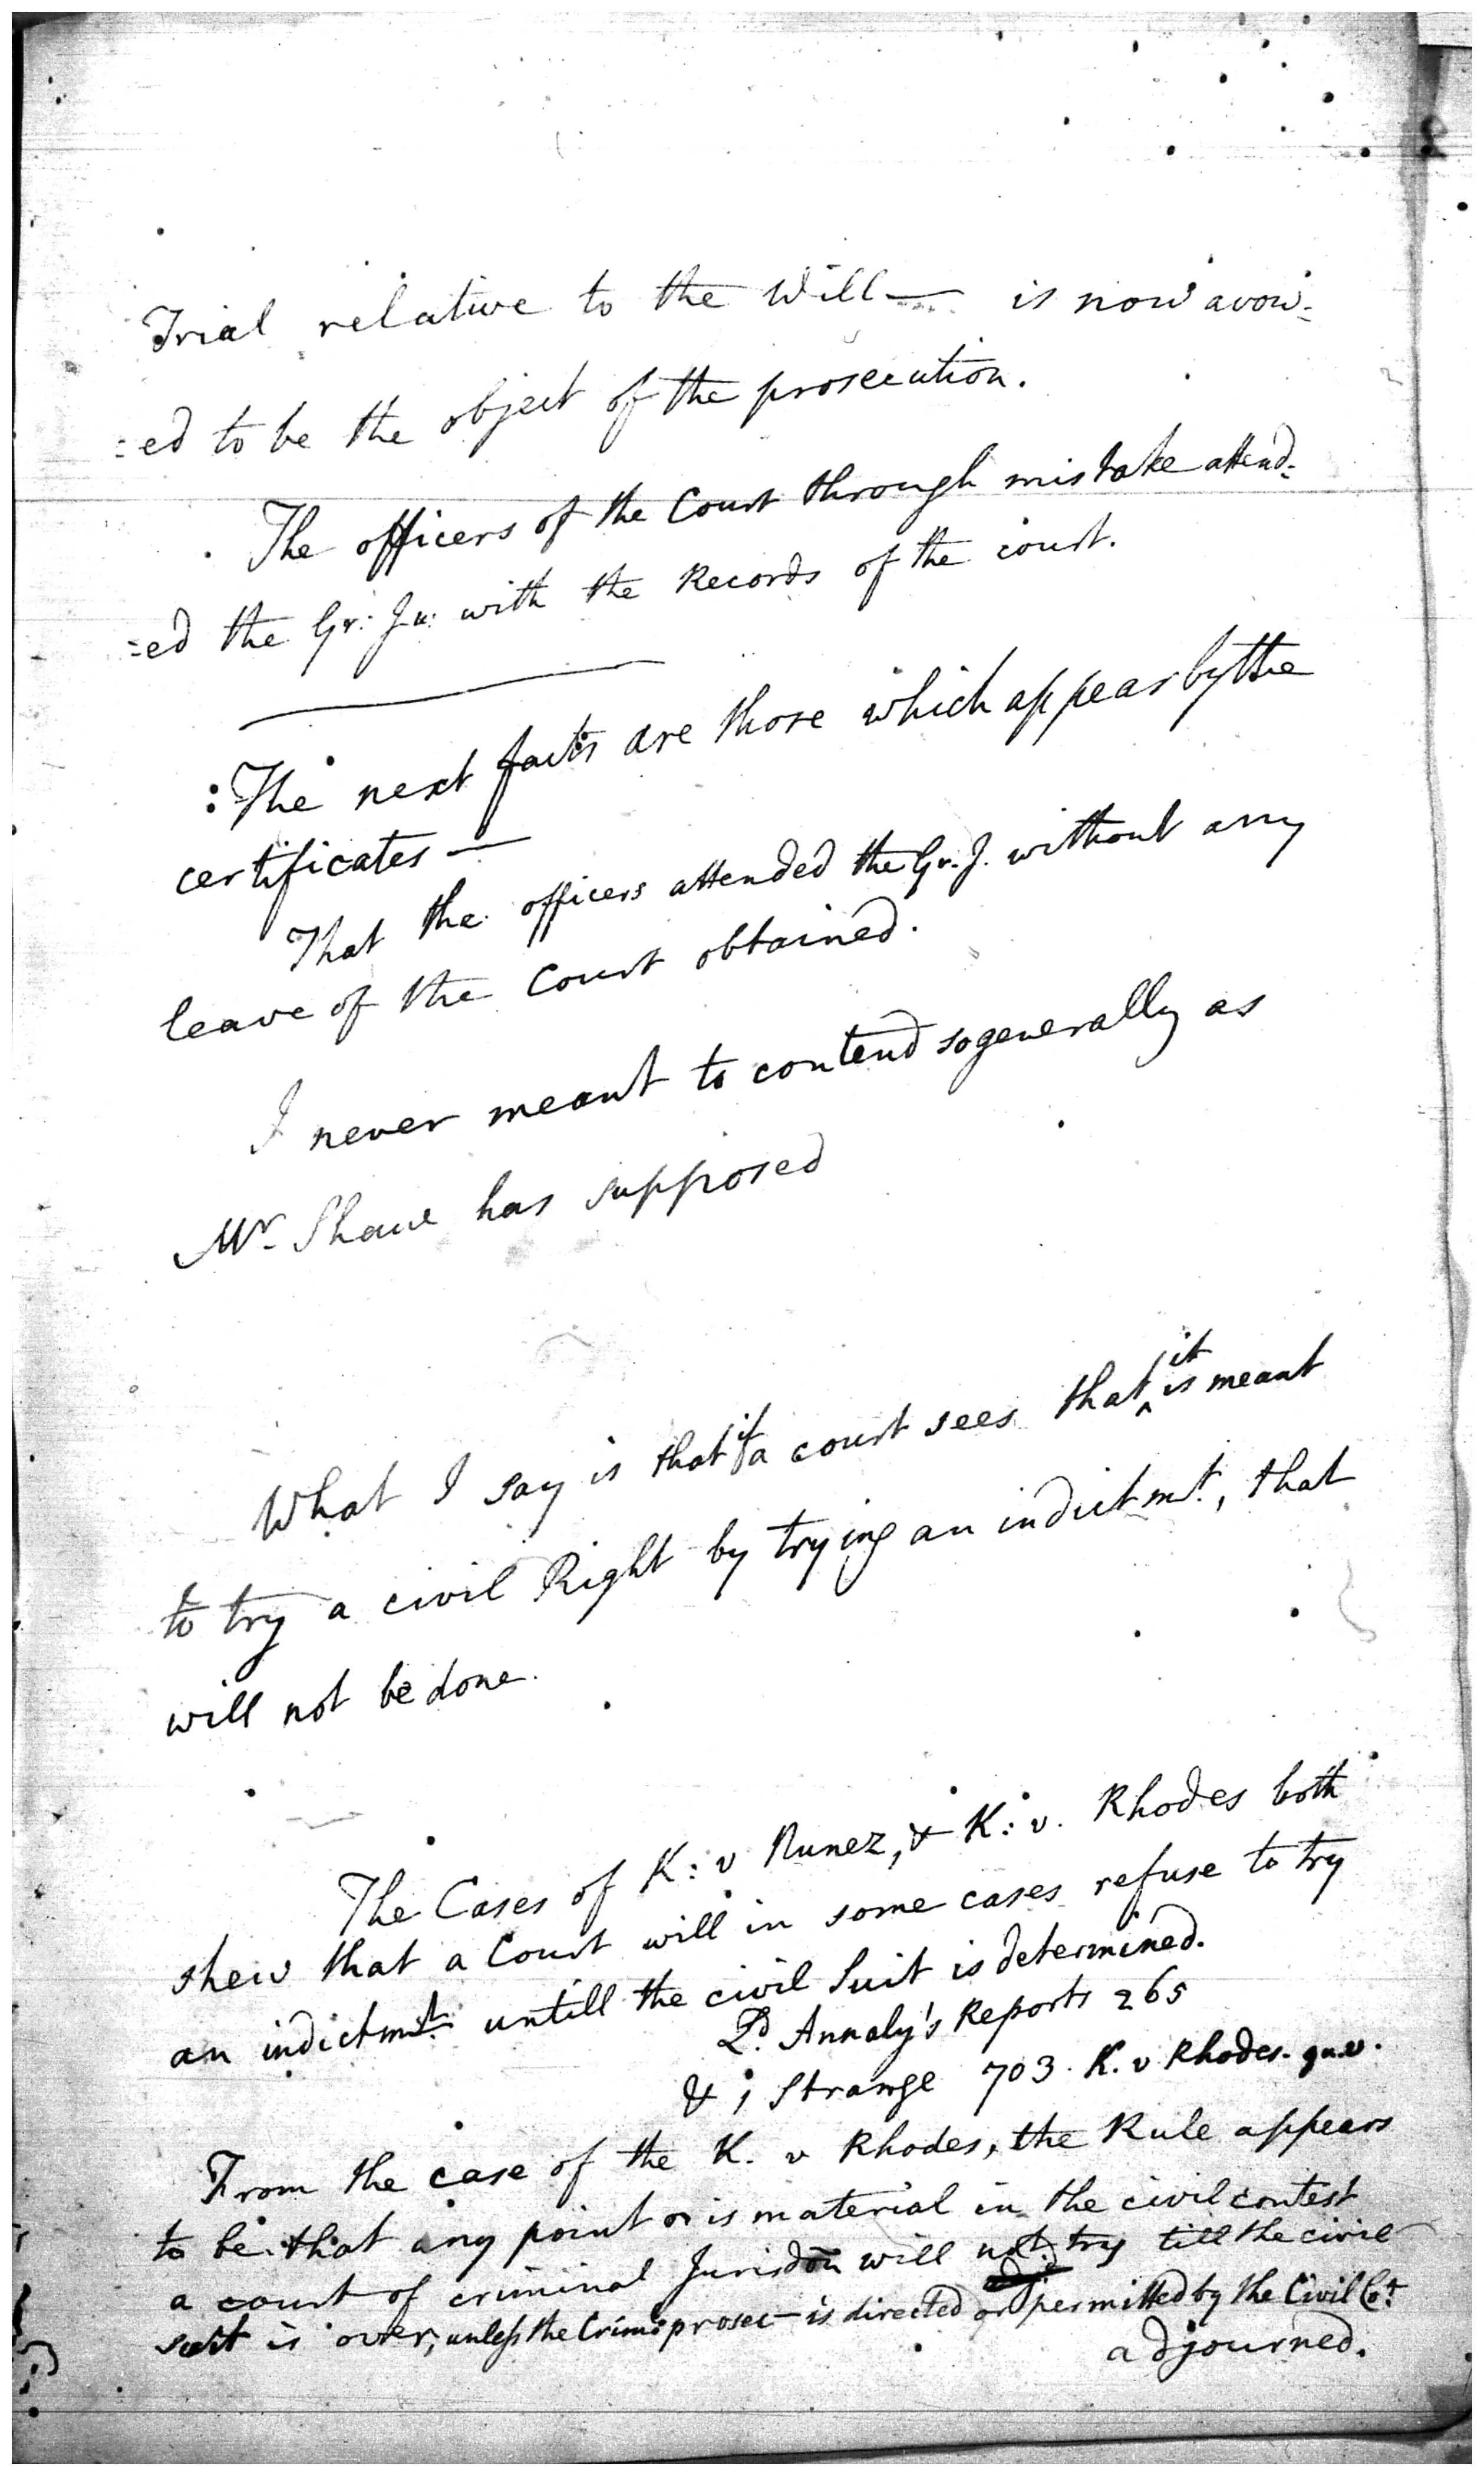 Trial relative to the Will — is now avow-
=ed to be the object of the prosecution.
The officers of the Court through mistake attend-
=ed the Gr: Ju: with the Records of the court.
The next facts are those which appear by the
certificates —
That the officers attended the Gr. J. without any
leave of the Court obtained.
I never meant to contend so generally as
Mr. Shaw has supposed
What I say is that if a court sees that it is meant
to try a civil Right by trying an indictmt., that
will not be done.
The Cases of K: v Nunez, & K: v. Rhodes both
shew that a Court will in some cases refuse to try
an indictmt. untill the civil Suit is determined.
Ld. Annaly's Reports 265
& 1 Strange 703. K. v Rhodes. qu.v.
From the case of the K. v Rhodes, the Rule appears
to be that any point or is material in the civil contest
a court of criminal Jurisdon will not try till the civil
suit is over, unless the Crim: prosec— is directed or permitted by the Civil Ct.
adjourned.